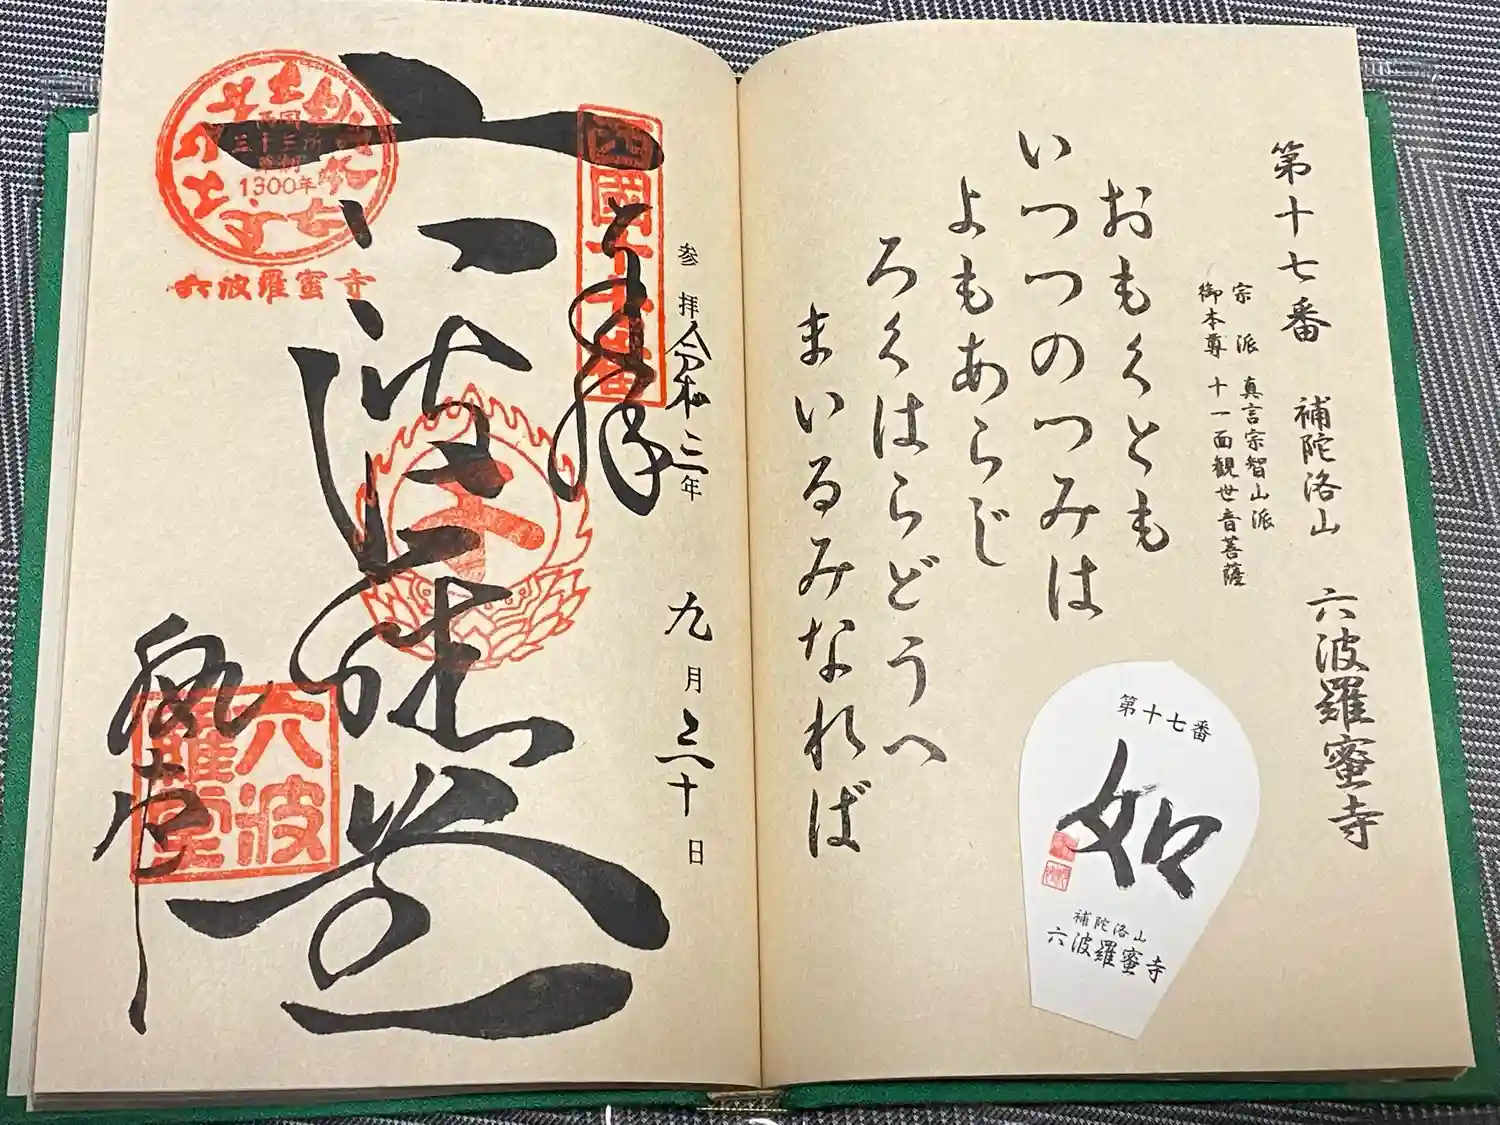 第十七番 補陀洛山 六波羅蜜寺
宗派 真言宗智山派
御本尊 十一面観世音菩薩
おもくとも
いつつのつみは
よもあらじ
ろくはらどうへ
まいるみなれば
第十七番
如
補陀洛山
六波羅蜜寺
参拝 令和三年 九月三十日
西國十七番
奉拝
西国
三十三所
草創
1300年
六波羅蜜寺
六波
羅堂